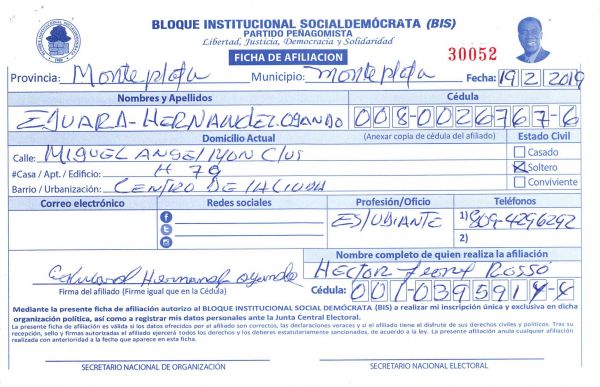 BLOQUE INSTITUCIONAL SOCIALDEMÓCRATA (BIS)
PARTIDO PEÑAGOMISTA
Libertad, Justicia, Democracia y Solidaridad
FICHA DE AFILIACION
30052
Provincia: Monte plata Municipio: monte plata Fecha: 19/2/2019
Nombres y Apellidos Cédula
EDUARD-HERNANDEZ OGANDO 008-0026767-6
Domicilio Actual (Anexar copia de cédula del afiliado) Estado Civil
Calle: MIGUEL ANGEL Casado
#Casa / Apt. / Edificio: # 79 Soltero
Barrio / Urbanización: CENTRO DE LA CIUDA Conviviente
Correo electrónico Redes sociales Profesión/Oficio Teléfonos
ESTUDIANTE 1) 809-4296292
2)
Nombre completo de quien realiza la afiliación
Eduard Hernandez Ogando HECTOR ROSSÓ
Firma del afiliado (Firme igual que en la Cédula) Cédula: 001-0395914-4
Mediante la presente ficha de afiliación autorizo al BLOQUE INSTITUCIONAL SOCIAL DEMÓCRATA (BIS) a realizar mi inscripción única y exclusiva en dicha
organización política, así como a registrar mis datos personales ante la Junta Central Electoral.
La presente ficha de afiliación es válida si los datos ofrecidos por el afiliado son correctos, las declaraciones veraces y si el afiliado tiene el disfrute de sus derechos civiles y políticos. Tras su
recepción, sello y firmas autorizadas el afiliado ejercerá todos los derechos y los deberes estatutariamente sancionados, de acuerdo a la ley. La presente afiliación anula cualquier afiliación
realizada con anterioridad a la fecha que aparece en esta ficha.
SECRETARIO DE ORGANIZACIÓN SECRETARIO NACIONAL ELECTORAL